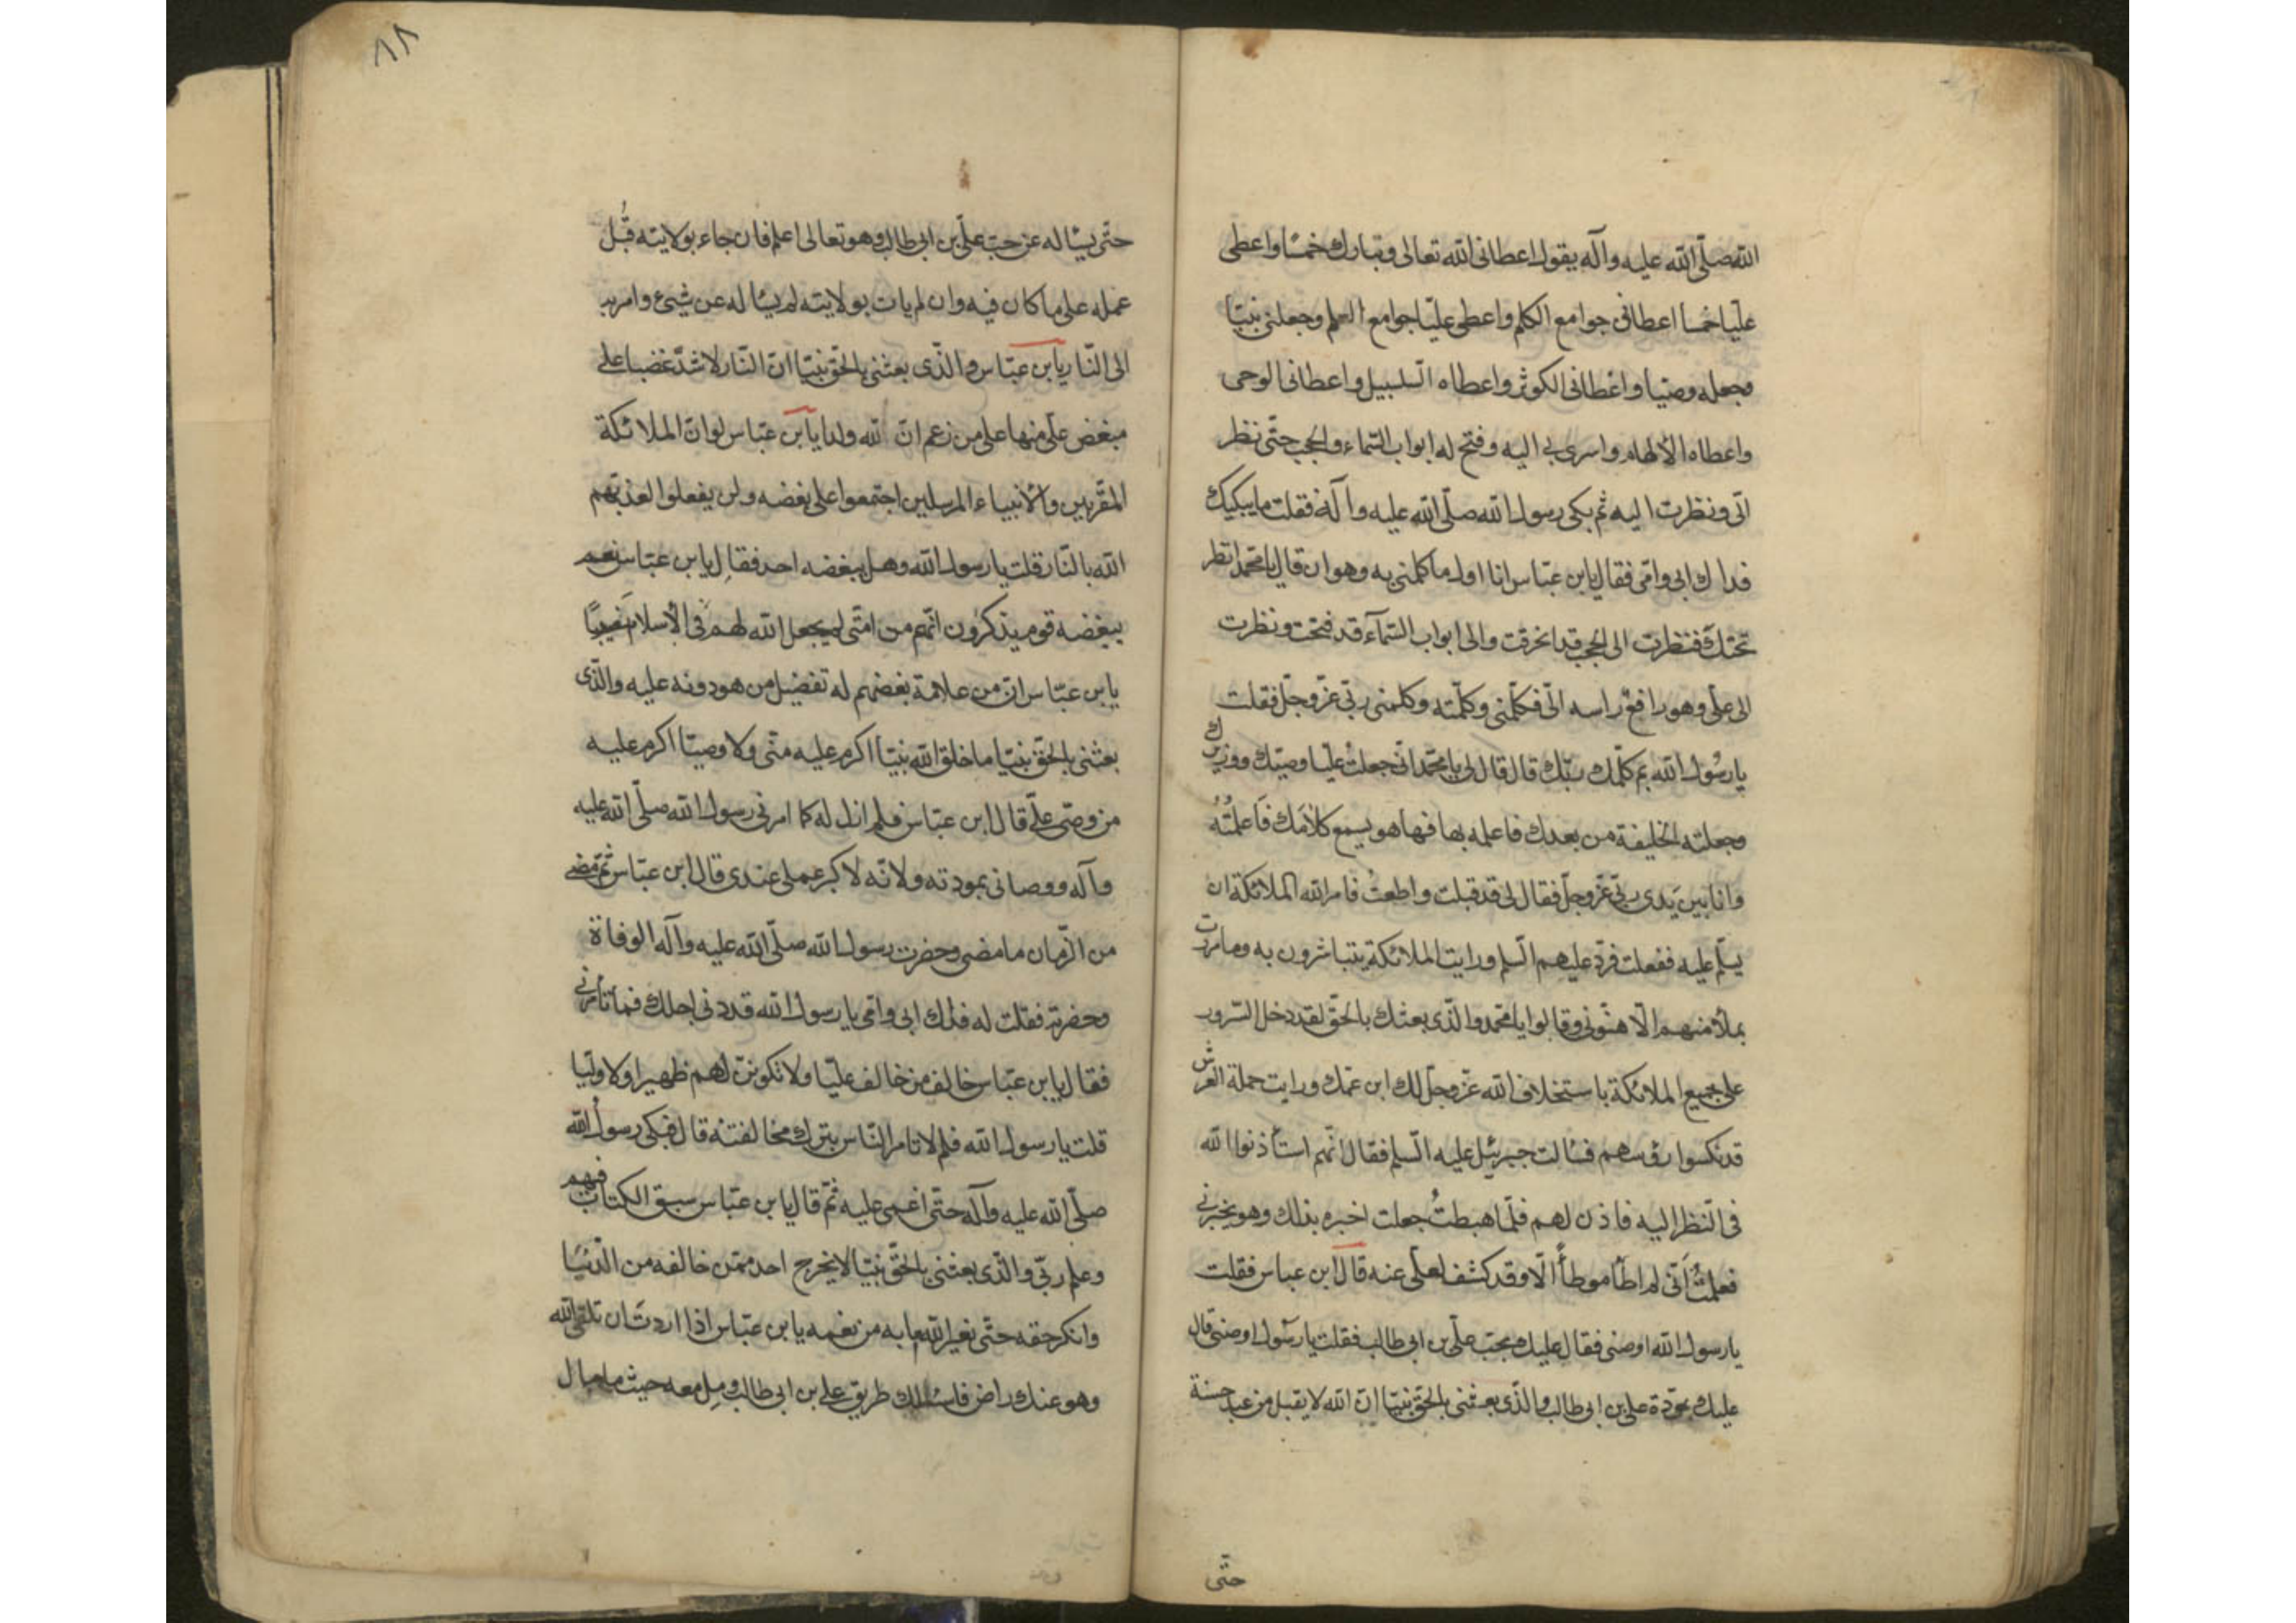 الله صلّى الله عليه وآله يقول اعطانى الله تعالى وتبارك خمسًا واعطى
عليّا خمسا اعطانى جوامع الكلم واعطى عليّا جوامع العلم وجعلنى نبيّا
وجعله وصيّا واعطانى الكوثر واعطاه السلسبيل واعطانى الوحى
واعطاه الالهام واسرى بى اليه وفتح له ابواب السّماء والحجب حتّى نظر
الىّ ونظرت اليه ثم بكى رسول الله صلّى الله عليه وآله فقلت ما يبكيك
فداك ابى وامّى فقال يابن عبّاس انا اول ما كلمنى به وهو ان قال يا محمّد انظر
تحتك فنظرت الى الحجب قد انخرقت والى ابواب السّمآء قد فتحت ونظرت
الى علىّ وهو رافع راسه الىّ فكلّمنى وكلّمته وكلمنى ربّى عزّ وجلّ فقلت
يا رسول الله بم كلّمك ربّك قال قال لى يا محمّد انّى جعلت عليّا وصيّك ووزيرك
وجعلته الخليفة من بعدك فاعلمه بها فها هو يسمع كلامك فاعلمتُهُ
وانا بين يدى ربّى عزّ وجلّ فقال لى قد قبلت واطعتُ فامر الله الملائكة ان
يسلّم عليه ففعلت فردّ عليهم السّلم ورايت الملائكة يتباشرون به وما مررت
بملأ منهم الّا هنّونى وقالوا يا محمّد والّذى بعثك بالحقّ لقد دخل السّرور
على جميع الملائكة باستخلاف الله عزّ وجلّ لك ابن عمّك ورايت حملة العرش
قد نكسوا رؤسهم فسالت جبرئيل عليه السّلم فقال انّهم استأذنوا الله
فى النّظر اليه فاذن لهم فلمّا هبطتُ جعلت اخبره بذلك وهو يخبرنى
فعلمتُ انّى لم اطأ موطأً الّا وقد كشف لعلى عنه قال ابن عباس فقلت
يا رسول الله اوصنى فقال عليك بحبّ علىّ بن ابى طالب فقلت يا رسول اوصنى قال
عليك بمودّة على بن ابى طالب والّذى بعثنى بالحقّ نبيّا انّ الله لا يقبل من عبد حسنة
حتّى
٨٨
حتّى يسٔاله عن حبّ علىّ بن ابى طالب وهو تعالى اعلم فان جاء بولايته قُبل
عمله على ما كان فيه وان لم يات بولايته لم يسٔاله عن شىٔ وامر به
الى النّار يابن عبّاس والّذى بعثنى بالحقّ نبيّا انّ النّار لاشدّ غضبا على
مبغض علىّ منها على من زعم انّ لله ولدا يابن عبّاس لو انّ الملائكة
المقرّبين والأنبياء المرسلين اجتمعوا على بغضه ولن يفعلوا لعذبهم
الله بالنّار قلت يا رسول الله وهل يبغضه احد فقال يابن عبّاس نعم
يبغضه قوم يذكرون انّهم من امّتى لم يجعل الله لهم فى الأسلام نصيبًا
يابن عبّاس انّ من علامة بغضهم له تفضيل من هو دونه عليه والّذى
بعثنى بالحقّ نبيّا ما خلق الله نبيّا اكرم عليه منّى ولا وصيّا اكرم عليه
من وصىّ علىّ قال ابن عبّاس فلم ازل له كما امرنى رسول الله صلّى الله عليه
وآله ووصانى بمودته ولانّه لاكبر عملى عندى قال ابن عبّاس ثمّ مضى
من الزّمان ما مضى وحضرت رسول الله صلّى الله عليه وآله الوفاة
وحضرته فقلت له فداك ابى وامّى يا رسول الله قد دنى اجلك فما تأمرنى
فقال يابن عبّاس خالف من خالف عليّا ولا تكوننّ لهم ظهيرا ولا وليّا
قلت يا رسول الله فلم لا تامر النّاس بترك مخالفته قال فبكى رسول الله
صلّى الله عليه وآله حتّى اغمى عليه ثمّ قال يابن عبّاس سبق الكتاب فيهم
وعلم ربّى والّذى بعثنى بالحقّ نبيّا لا يخرج احد ممّن خالفه من الدّنيا
وانكر حقه حتّى يغير الله ما به من نعمه يابن عبّاس اذا اردت ان تلقى الله
وهو عنك راض فاسلك طريق على بن ابى طالب ومِل معه حيث ما مال